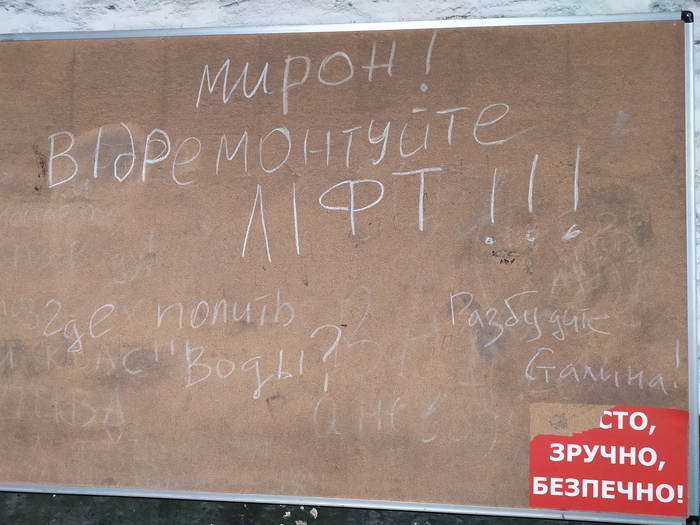 мирон!
ВІДРемонтуйте
ЛІФТ!!!
Где попить
воды?
Разбудите
Сталина!
СТО,
ЗРУЧНО,
БЕЗПЕЧНО!